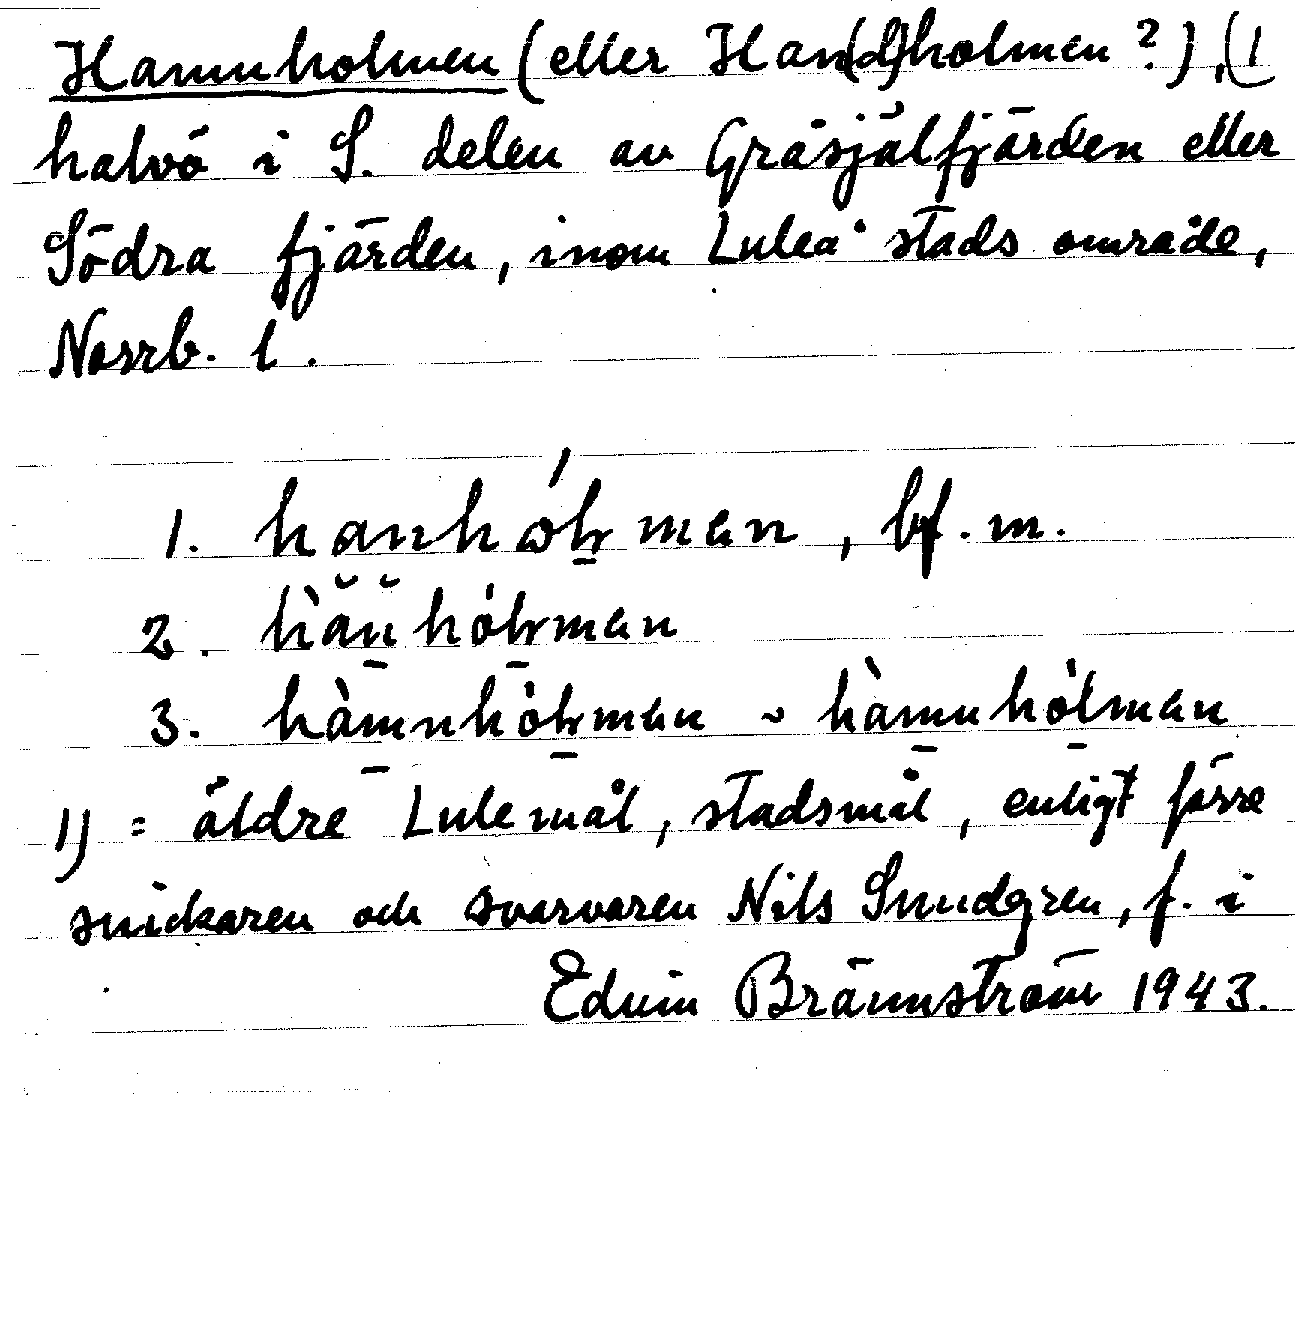 Hamnholmen (eller Han(d)holmen?), (1
halvö i S. delen av Gräsjälfjärden eller
Södra fjärden, inom Luleå stads område,
Norrb. l.
1. hanhólman, bf. m.
2. hànhólman
3. hàmnhólman ~ hàmnhólman
1) = äldre Lulemål, stadsmål, enligt förre
snickaren och svarvaren Nils Sundgren, f. i
Edvin Brännström 1943.